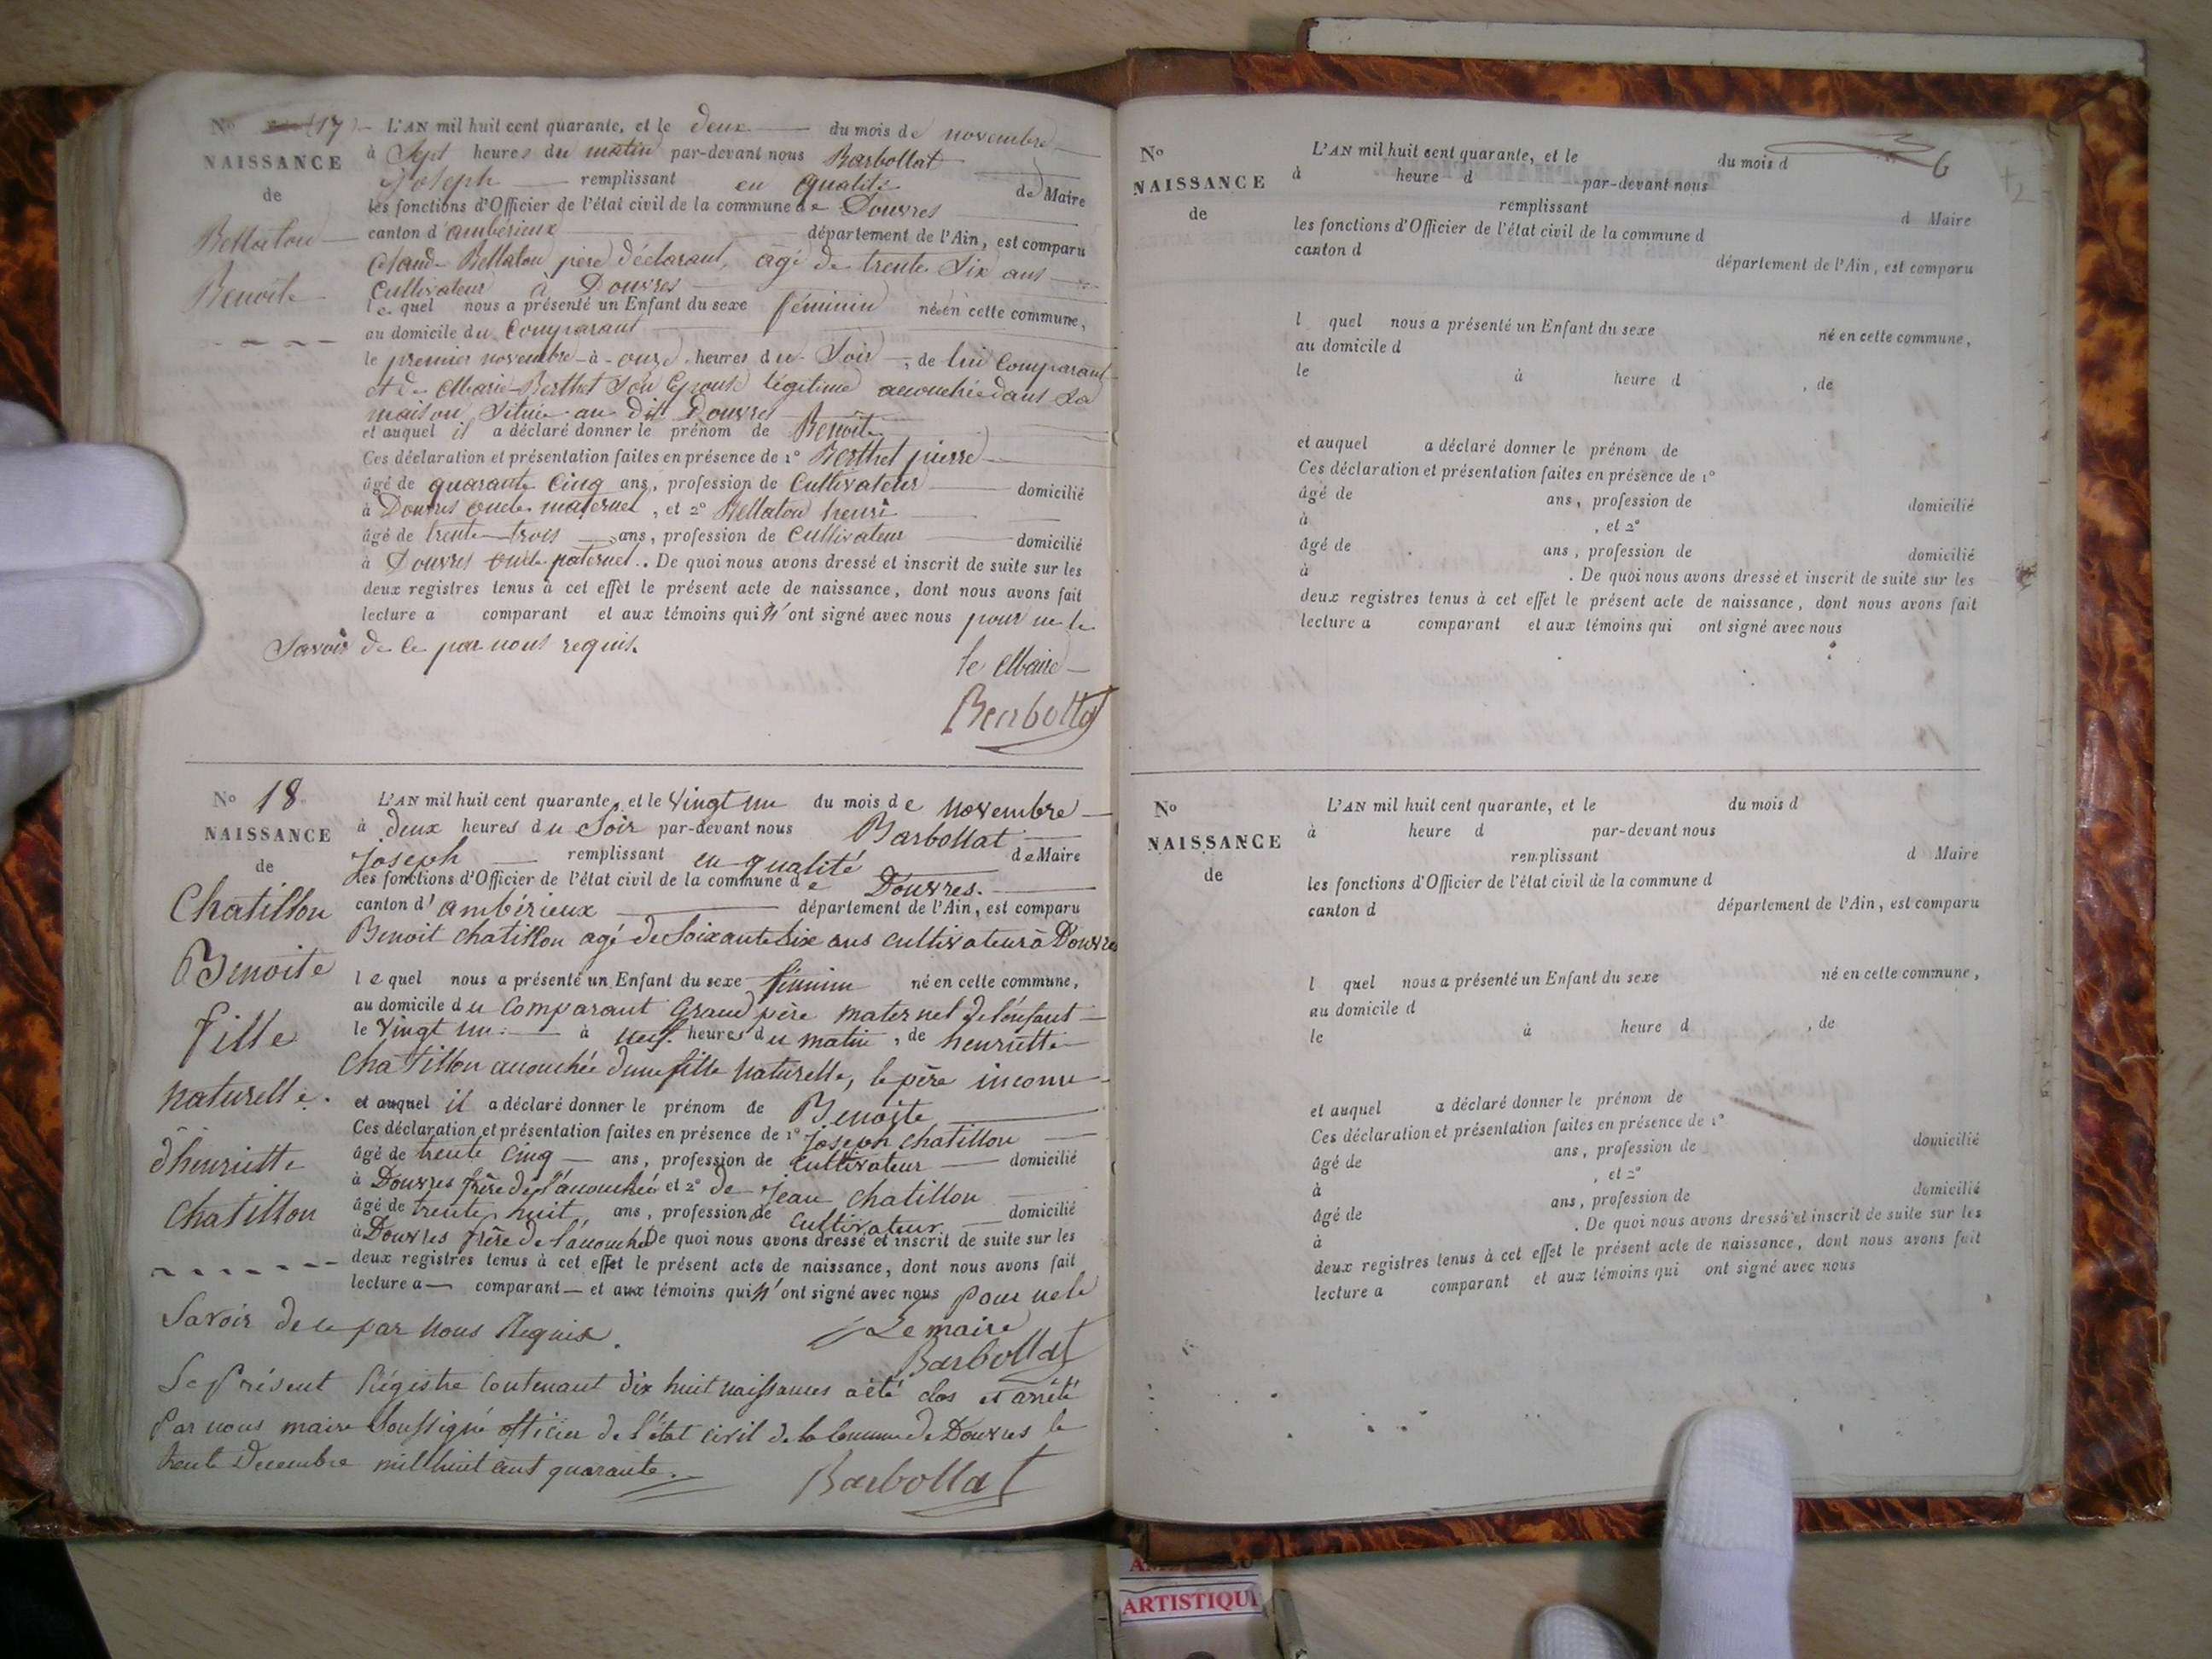 No 17 L'AN mil huit cent quarante, et le deux du mois de novembre
NAISSANCE à Sept heures du matin par-devant nous Barbollat
Joseph remplissant en qualité de Maire
de les fonctions d'Officier de l'état civil de la commune de Douvres
canton d'ambérieux département de l'Ain, est comparu
Bellaton Claude Bellaton père déclarant, agé de trente Six ans
Cultivateur à Douvres
Benoite le quel nous a présenté un Enfant du sexe féminin née en cette commune,
au domicile du Comparant
le premier novembre à onze heures du Soir, de lui Comparant
et de Marie Berthet Son Epouse légitime accouchée dans Sa
maison Située au dit Douvres
et auquel il a déclaré donner le prénom de Benoite
Ces déclaration et présentation faites en présence de 1º Berthet pierre
âgé de quarante Cinq ans, profession de Cultivateur domicilié
à Douvres oncle maternel, et 2º Bellaton henri
âgé de trente trois ans, profession de Cultivateur domicilié
à Douvres oncle paternel. De quoi nous avons dressé et inscrit de suite sur les
deux registres tenus à cet effet le présent acte de naissance, dont nous avons fait
lecture a comparant et aux témoins qui n'ont signé avec nous pour ne le
Savoir de ce par nous requis.
le Maire
Barbollat
No 18 L'AN mil huit cent quarante, et le Vingt un du mois de novembre
NAISSANCE à deux heures du Soir par-devant nous Barbollat
Joseph remplissant en qualité de Maire
de les fonctions d'Officier de l'état civil de la commune de Douvres.
Chatillon canton d'ambérieux département de l'Ain, est comparu
Benoit chatillon agé de Soixante Six ans cultivateur à Douvres
Benoite le quel nous a présenté un Enfant du sexe féminin né en cette commune,
au domicile du Comparant Grand père maternel de l'enfant
fille le Vingt un à neuf heures du matin, de henriette
Chatillon accouchée d'une fille Naturelle, le père inconnu
naturelle. et auquel il a déclaré donner le prénom de Benoite
Ces déclaration et présentation faites en présence de 1º Joseph chatillon
d'henriette âgé de trente Cinq ans, profession de Cultivateur domicilié
à Douvres frère de l'accouchée et 2º de Jean chatillon
Chatillon âgé de trente huit ans, profession de Cultivateur domicilié
à Douvres frère de l'accouchée De quoi nous avons dressé et inscrit de suite sur les
deux registres tenus à cet effet le présent acte de naissance, dont nous avons fait
lecture a comparant et aux témoins qui n'ont signé avec nous pour ne le
Savoir de ce par nous Requis.
Le maire
Barbollat
Le présent Régistre Contenant dix huit naissances a été clos et arrêté
Par nous maire Soussigné officier de l'état civil de la Commune de Douvres le
trente Decembre mil huit cent quarante.
Barbollat
6
No L'AN mil huit cent quarante, et le du mois d
NAISSANCE à heure d par-devant nous
de remplissant d Maire
les fonctions d'Officier de l'état civil de la commune d
canton d département de l'Ain, est comparu
l quel nous a présenté un Enfant du sexe né en cette commune,
au domicile d
le à heure d , de
et auquel a déclaré donner le prénom de
Ces déclaration et présentation faites en présence de 1º
âgé de ans, profession de domicilié
à , et 2º
âgé de ans, profession de domicilié
à . De quoi nous avons dressé et inscrit de suite sur les
deux registres tenus à cet effet le présent acte de naissance, dont nous avons fait
lecture a comparant et aux témoins qui ont signé avec nous
No L'AN mil huit cent quarante, et le du mois d
NAISSANCE à heure d par-devant nous
de remplissant d Maire
les fonctions d'Officier de l'état civil de la commune d
canton d département de l'Ain, est comparu
l quel nous a présenté un Enfant du sexe né en cette commune,
au domicile d
le à heure d , de
et auquel a déclaré donner le prénom de
Ces déclaration et présentation faites en présence de 1º
âgé de ans, profession de domicilié
à , et 2º
âgé de ans, profession de domicilié
à . De quoi nous avons dressé et inscrit de suite sur les
deux registres tenus à cet effet le présent acte de naissance, dont nous avons fait
lecture a comparant et aux témoins qui ont signé avec nous
ARTISTIQU